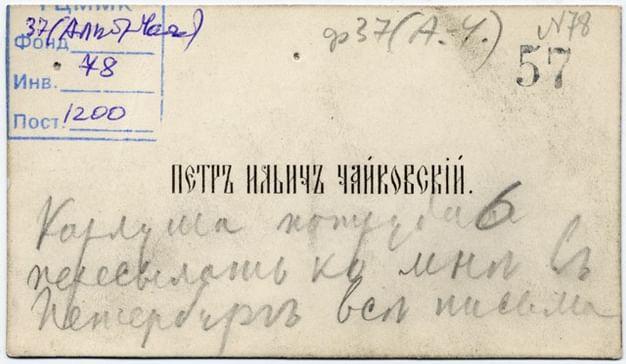 ГЦММК
37
Фонд
Инв. 78
Пост. 1200
ф 37 (А.-Ч.)
N78
57
ПЕТРЪ ИЛЬИЧЪ ЧАЙКОВСКІЙ.
6
Карлуша потрудись
пересылать ко мнѣ въ
Петербургъ всѣ письма